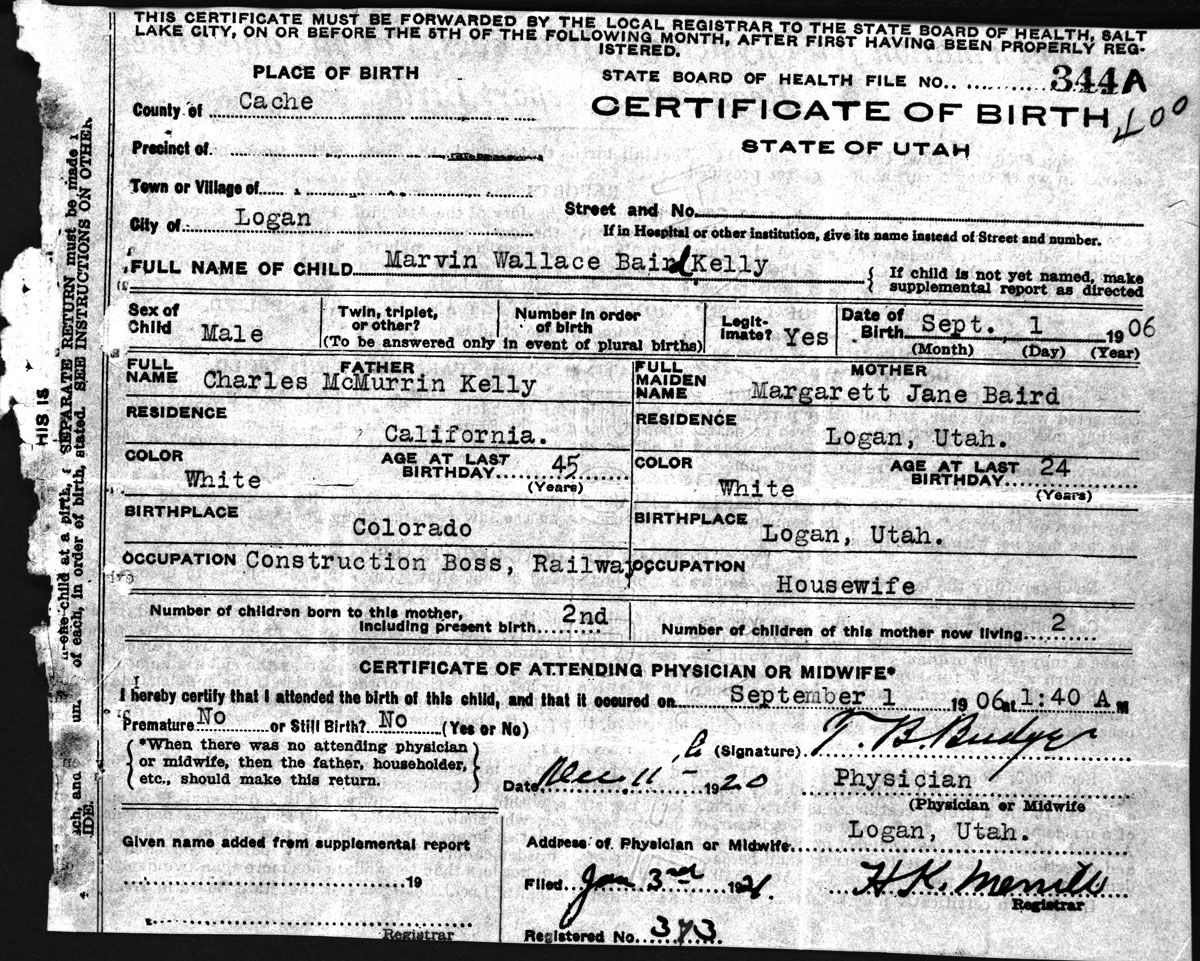 THIS CERTIFICATE MUST BE FORWARDED BY THE LOCAL REGISTRAR TO THE STATE BOARD OF HEALTH, SALT
LAKE CITY, ON OR BEFORE THE 5TH OF THE FOLLOWING MONTH, AFTER FIRST HAVING BEEN PROPERLY REG-
ISTERED.
PLACE OF BIRTH
STATE BOARD OF HEALTH FILE NO. 344A
County of Cache
CERTIFICATE OF BIRTH
Precinct of
STATE OF UTAH
Town or Village of
City of Logan
Street and No.
If in Hospital or other institution, give its name instead of Street and number.
FULL NAME OF CHILD Marvin Wallace Baird Kelly
{ If child is not yet named, make
supplemental report as directed
Sex of
Child Male
Twin, triplet,
or other?
Number in order
of birth
(To be answered only in event of plural births)
Legit-
imate? Yes
Date of
Birth Sept. 1 1906
(Month) (Day) (Year)
FATHER
FULL
NAME Charles McMurrin Kelly
MOTHER
FULL
MAIDEN
NAME Margarett Jane Baird
RESIDENCE
California.
RESIDENCE
Logan, Utah.
COLOR
White
AGE AT LAST
BIRTHDAY 45
(Years)
COLOR
White
AGE AT LAST
BIRTHDAY 24
(Years)
BIRTHPLACE
Colorado
BIRTHPLACE
Logan, Utah.
OCCUPATION Construction Boss, Railway
OCCUPATION
Housewife
Number of children born to this mother,
including present birth 2nd
Number of children of this mother now living 2
CERTIFICATE OF ATTENDING PHYSICIAN OR MIDWIFE*
I hereby certify that I attended the birth of this child, and that it occured on September 1 1906 at 1:40 A M
Premature No or Still Birth? No (Yes or No)
{ *When there was no attending physician
or midwife, then the father, householder,
etc., should make this return. }
(Signature) T. B. Budge
Date Dec 11 - 1920
Physician
(Physician or Midwife
Address of Physician or Midwife Logan, Utah.
Given name added from supplemental report
19
Registrar
Filed Jan 3rd 1921.
H K. Merrill
Registrar
Registered No. 373
HIS IS
SEPARATE RETURN must be made
child at a birth,
of each, in order of birth, stated. SEE INSTRUCTIONS ON OTHER